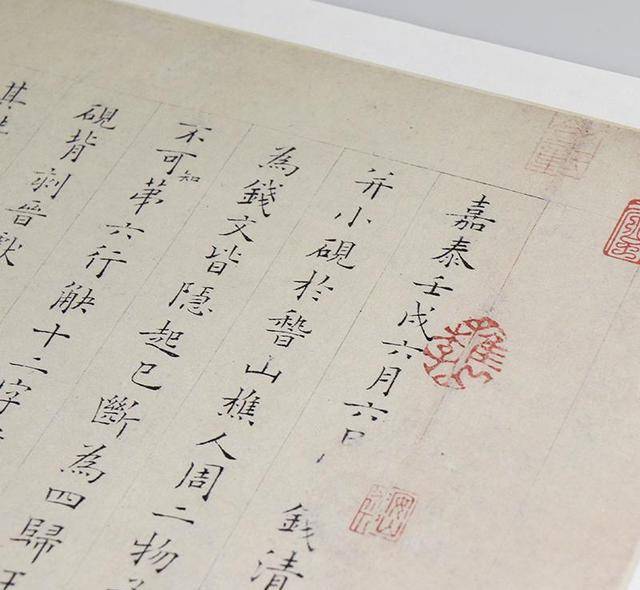 嘉泰壬戌六月六日 錢清
并小硯於稽山樵人周二物
為錢文皆隱起已斷為四歸王
不可知第六行觖十二字
硯背刻晉獻
其